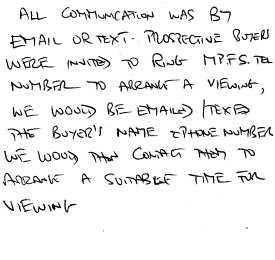 ALL COMMUNICATION WAS BY
EMAIL OR TEXT. PROSPECTIVE BUYERS
WERE INVITED TO RING M.P.F.S. TEL
NUMBER TO ARRANGE A VIEWING,
WE WOULD BE EMAILED/TEXED
THE BUYER'S NAME & PHONE NUMBER
WE WOULD THEN CONTACT THEM TO
ARRANGE A SUITABLE TIME FOR
VIEWING